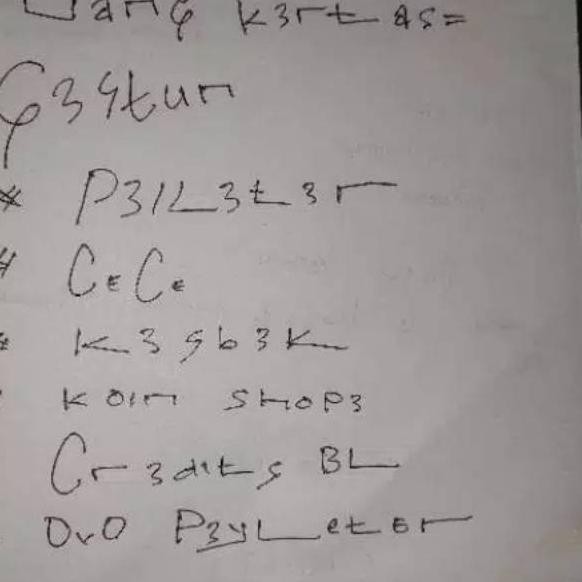 Uang k3rtas=
G3stun
* P3lL3t3r
* CeCe
* k3sb3k
koin shop3
Cr3dits BL
OvO P3yLeter